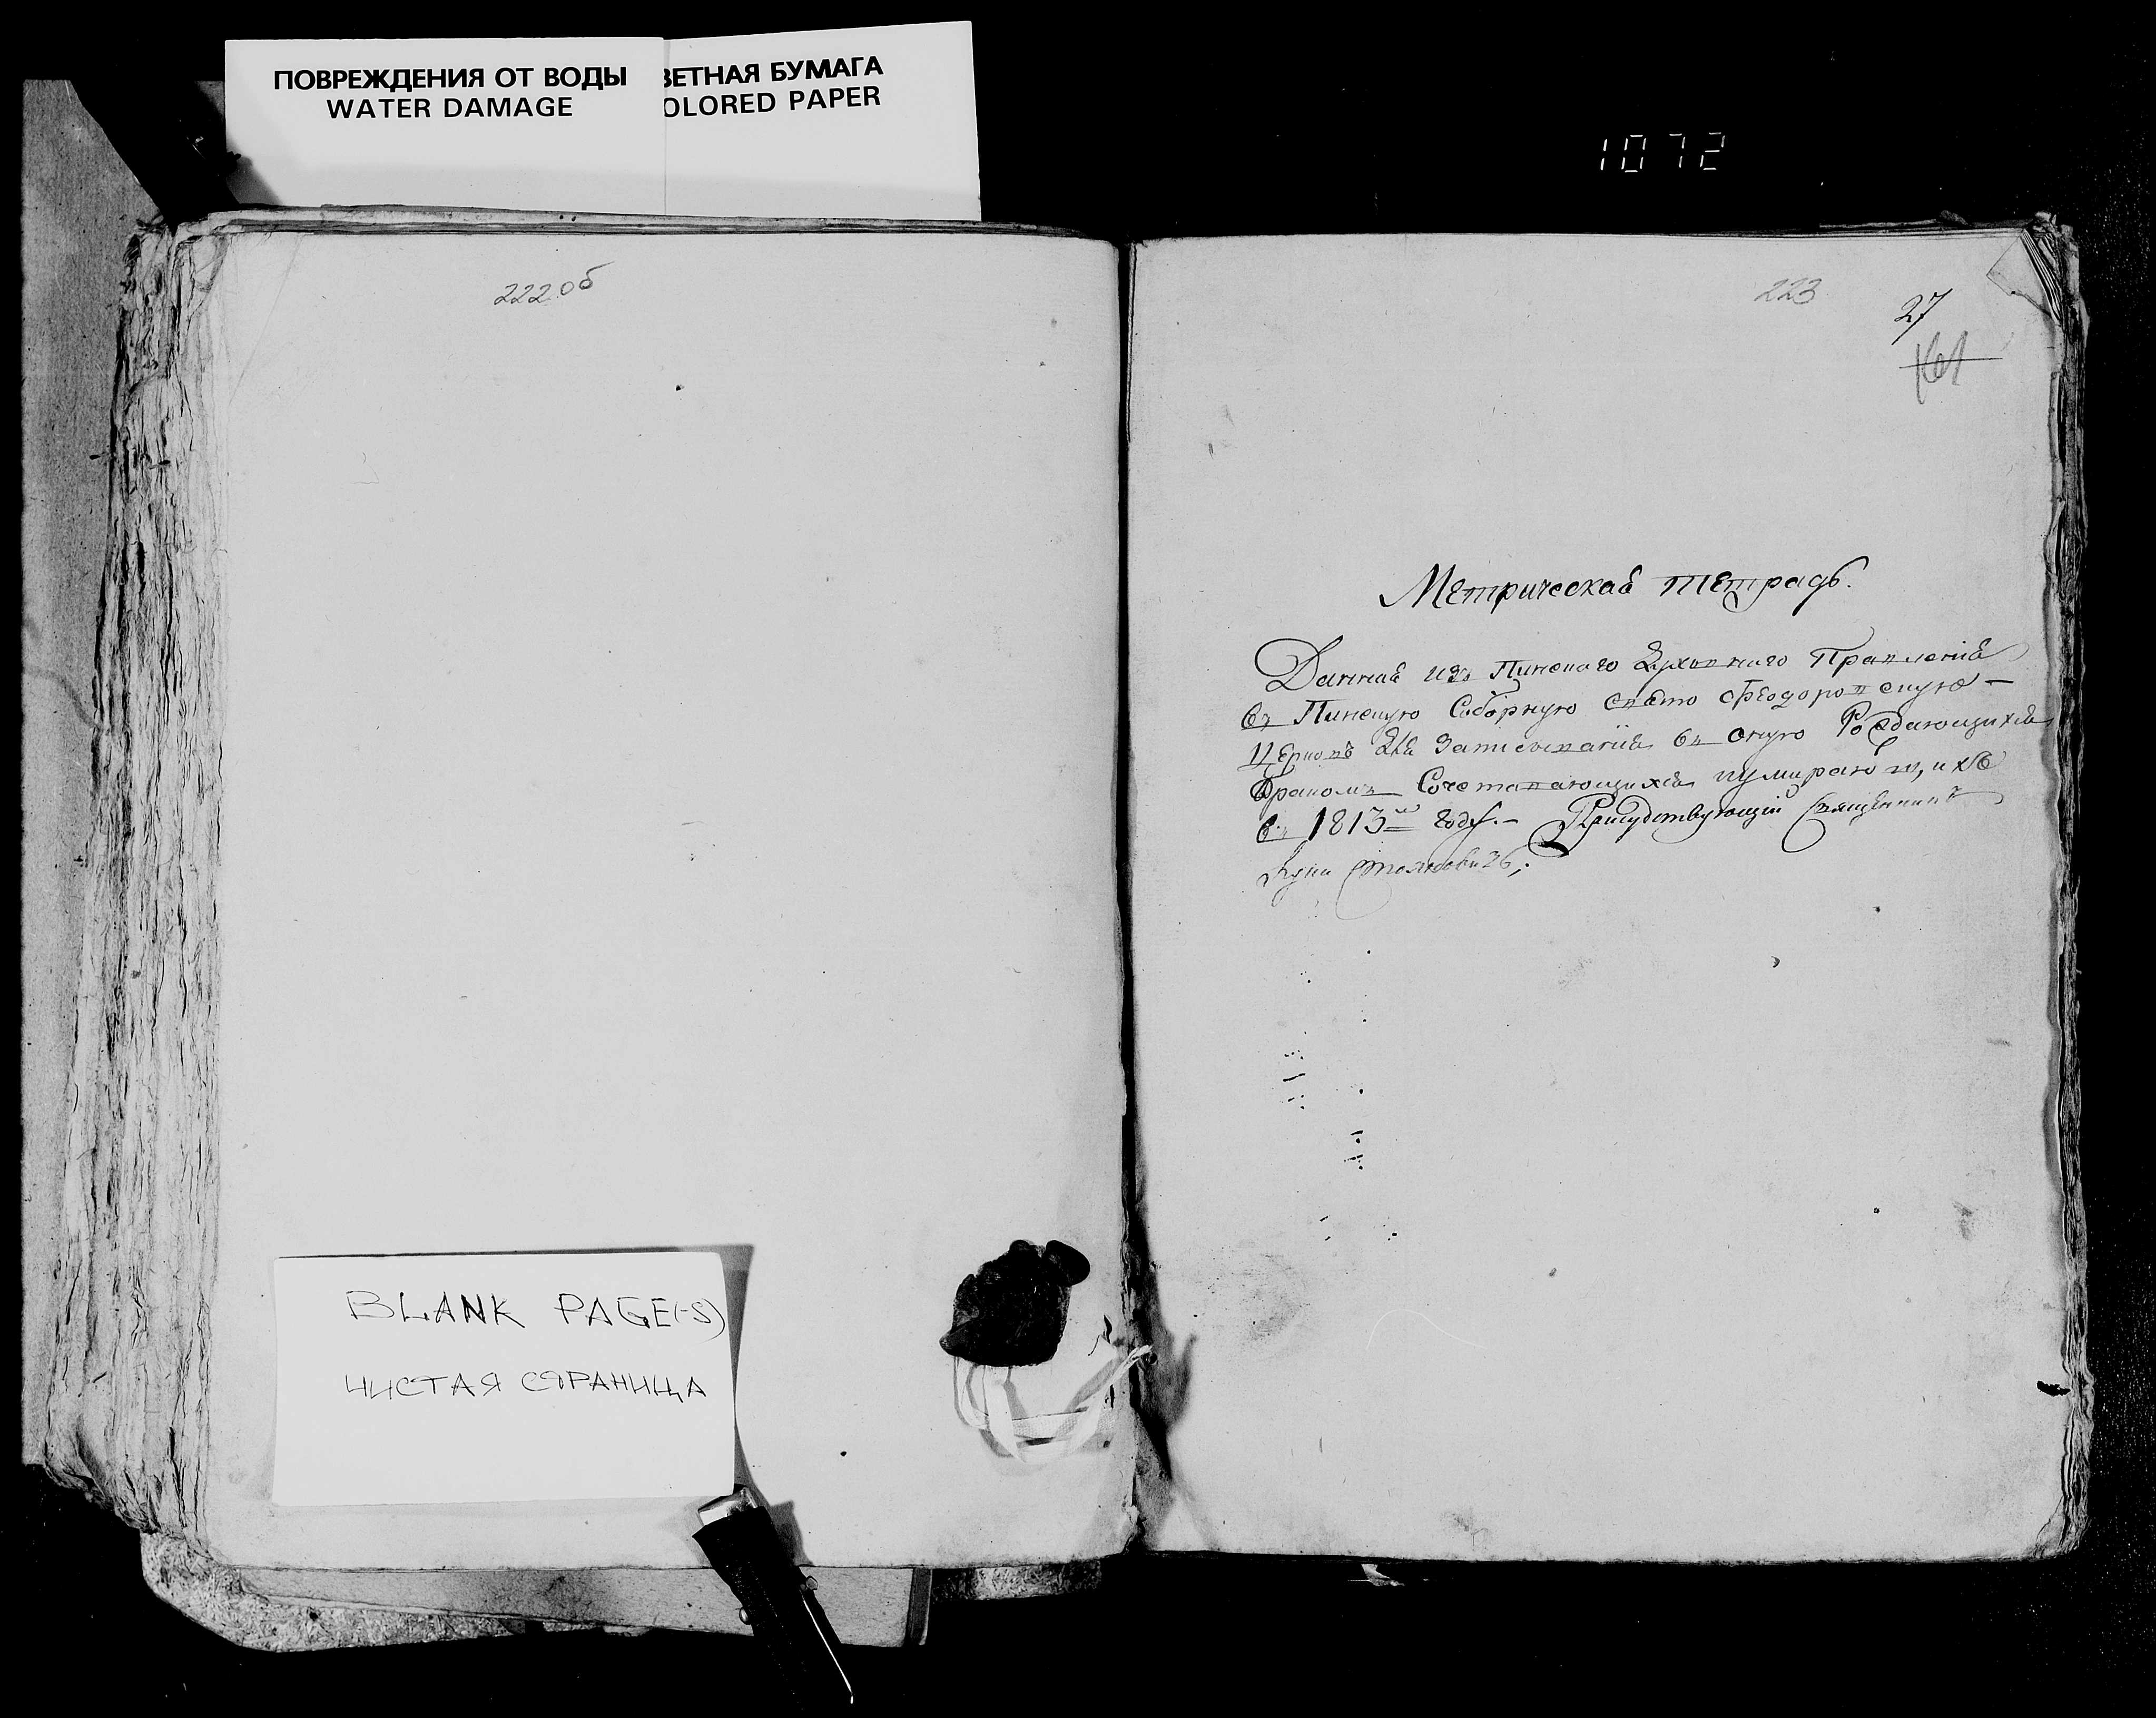 ПОВРЕЖДЕНИЯ ОТ ВОДЫ
WATER DAMAGE
ВЕТНАЯ БУМАГА
OLORED PAPER
1072
222 об
223
27
161
Метрическая тетрадь.
Данная изъ Пинского Духовного Правленія
въ Пинскую Соборную свято Феодоровскую –
Церковь Для Записыванія въ оную Рождающихся
Бракомъ Сочетавающихся иумирающихъ
въ 1813м году. – Присудствующій Священникъ
BLANK PAGE(-S)
ЧИСТАЯ СТРАНИЦА